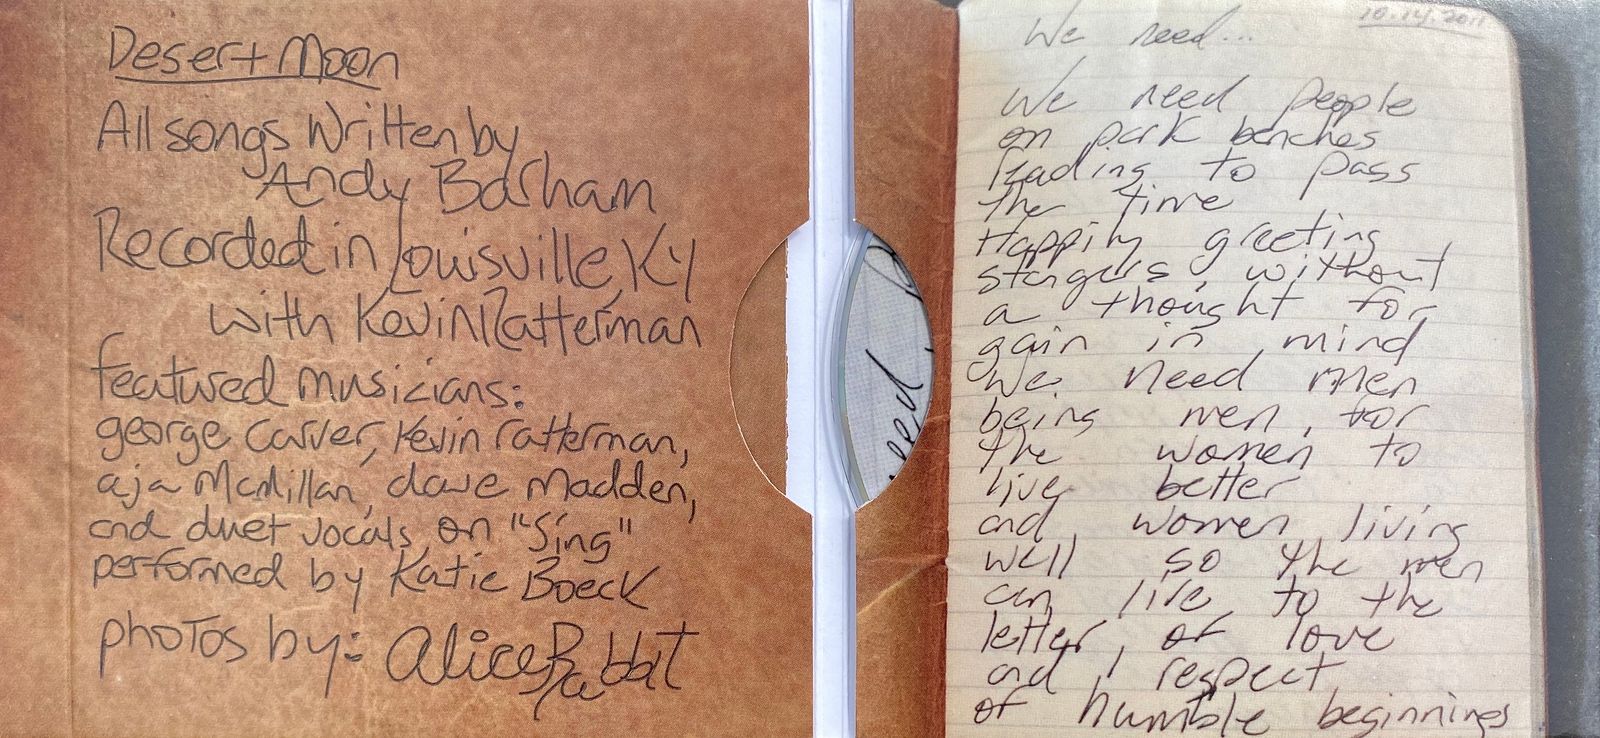 Desert Moon
All songs Written by
Andy Barham
Recorded in Louisville, KY
with Kevin Ratterman
featured musicians:
george carver, Kevin ratterman,
aja McMillan, dave Madden,
and duet vocals on "Sing"
performed by Katie Boeck
photos by: Alice Rabbit
need
10.14.2011
We need...
We need people
on park benches
reading to pass
the time
Happily greeting
stangers without
a thought for
gain in mind
We need men
being men, for
the women to
live better
and women living
well so the men
can live to the
letter, of love
and respect
of humble beginnings